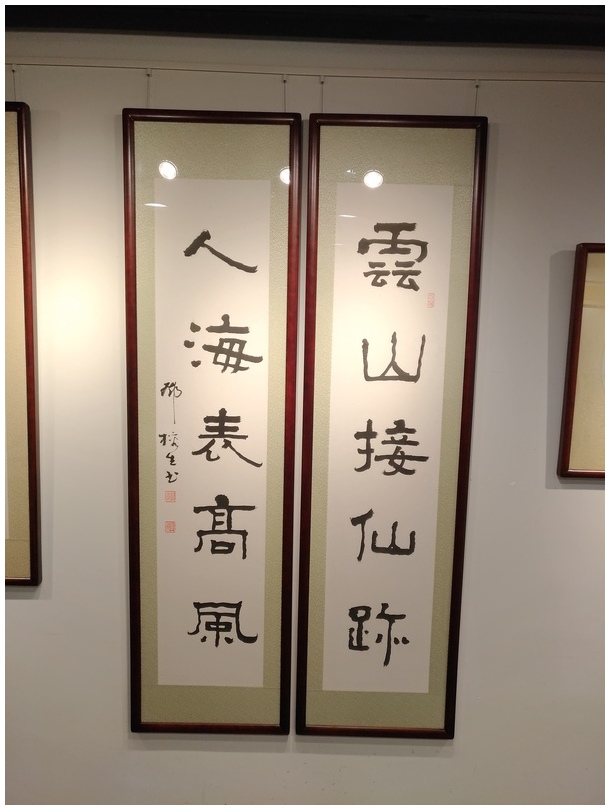 雲山接仙跡
人海表高風
鄧 生书